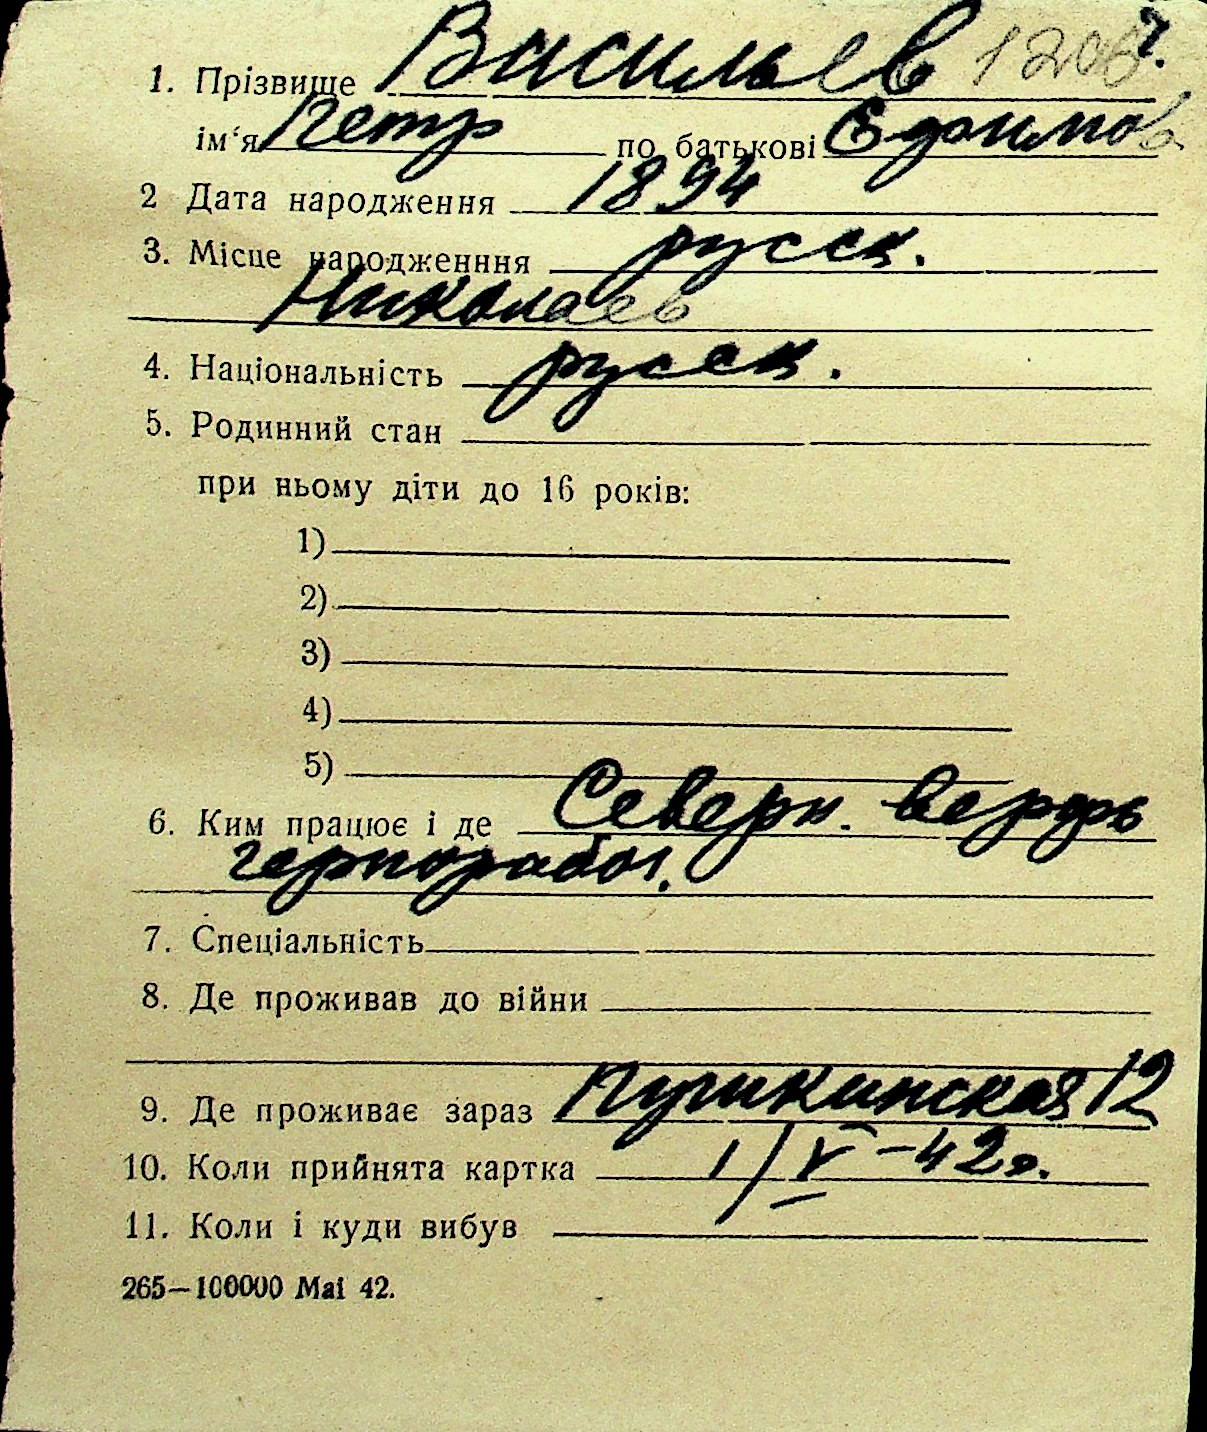 1. Прізвище Васильев
ім‘я Петр по батькові
2 Дата народження 1894
3. Місце народженння русск.
Николаев
4. Національність русск.
5. Родинний стан
при ньому діти до 16 років:
1)
2)
3)
4)
5)
6. Ким працює і де Северн. верфь
чернорабоч.
7. Спеціальність
8. Де проживав до війни
9. Де проживає зараз Пушкинская 12
10. Коли прийнята картка 1/V-42г.
11. Коли і куди вибув
265—100000 Mai 42.